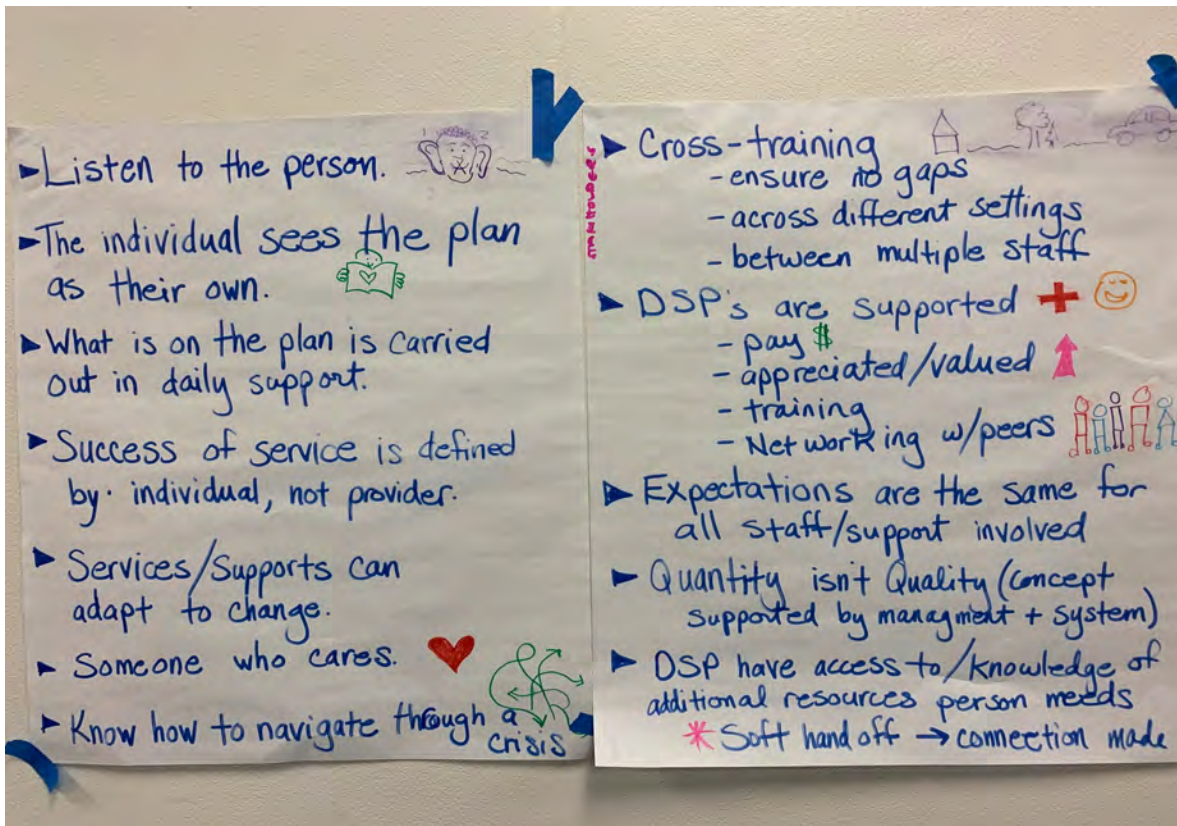 Listen to the person.
The individual sees the plan
as their own.
What is on the plan is carried
out in daily support.
Success of service is defined
by individual, not provider.
Services/Supports can
adapt to change.
Someone who cares.
Know how to navigate through a
crisis
Cross-training
- ensure no gaps
- across different settings
- between multiple staff
DSP's are supported +
- pay $
- appreciated/valued
- training
- Networking w/peers
Expectations are the same for
all staff/support involved
Quantity isn't Quality (concept
supported by managment + system)
DSP have access to/knowledge of
additional resources person needs
* Soft hand off → connection made